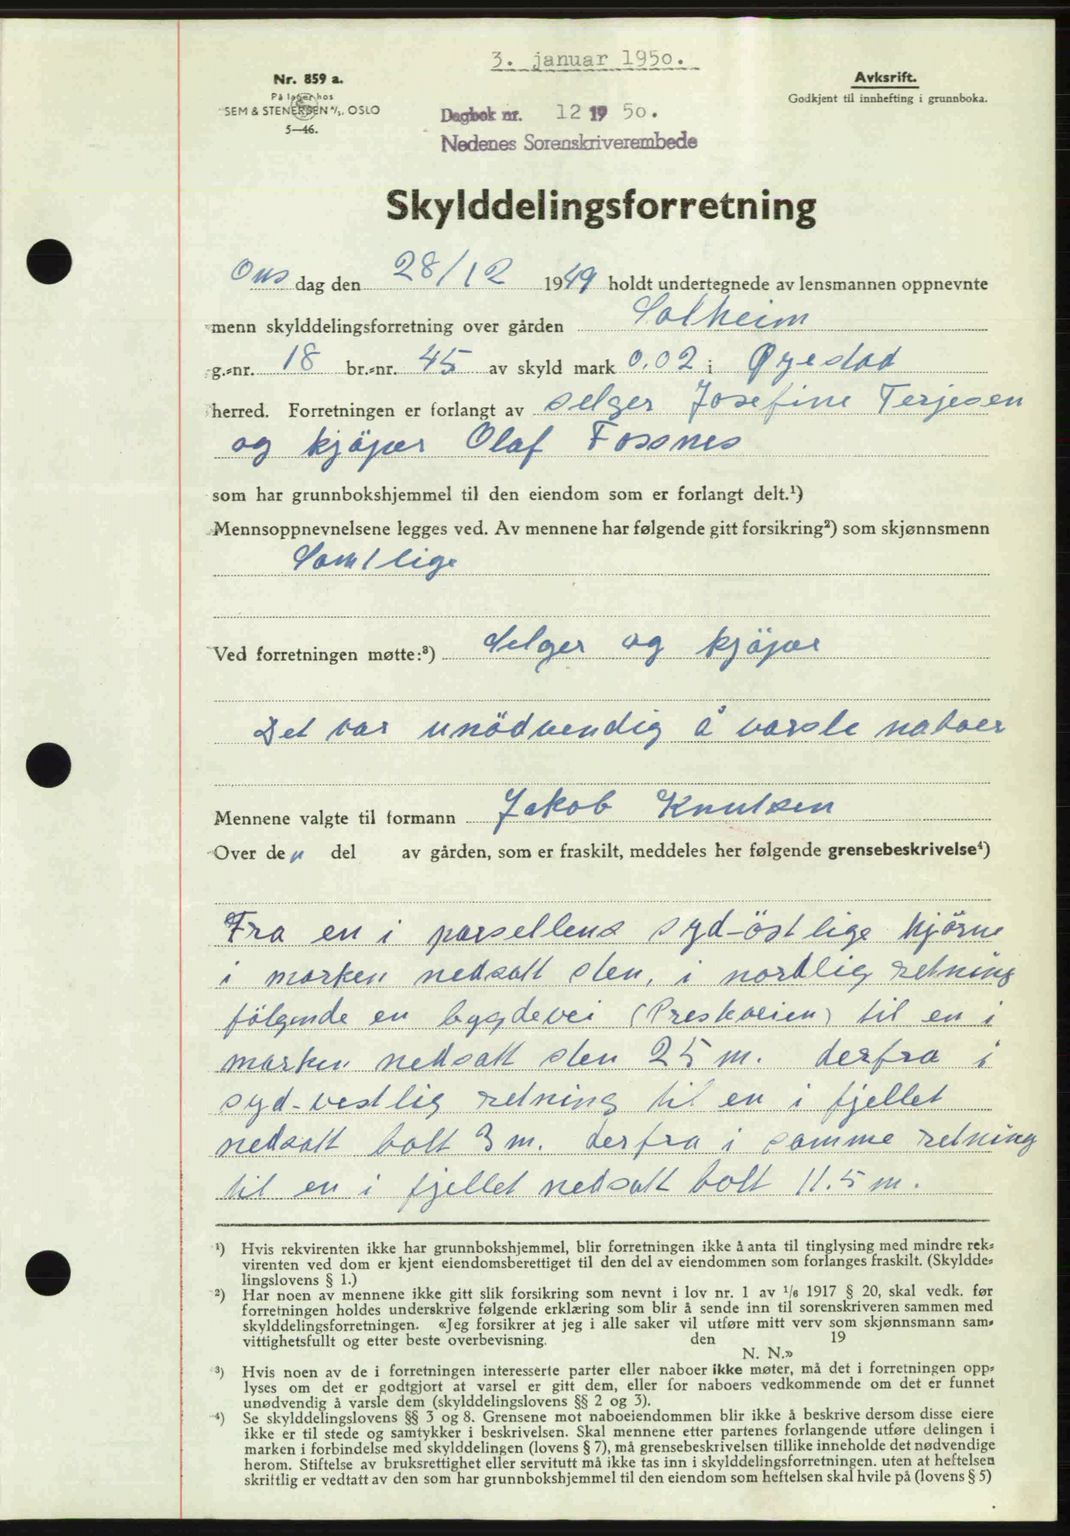 3. januar 1950.
Nr. 859 a.
På lager hos
SEM & STENERSEN A/S. OSLO
5—46.
Avskrift.
Godkjent til innhefting i grunnboka.
Dagbok nr. 12 19 50.
Nedenes Sorenskriverembede
Skylddelingsforretning
Ons dag den 28/12 1949 holdt undertegnede av lensmannen oppnevnte
menn skylddelingsforretning over gården Solheim
g.-nr. 18 br.-nr. 45 av skyld mark 0.02 i Øyestad
herred. Forretningen er forlangt av selger Josefine Terjesen
og kjöper Olaf Fossnes
som har grunnbokshjemmel til den eiendom som er forlangt delt.¹)
Mennsoppnevnelsene legges ved. Av mennene har følgende gitt forsikring²) som skjønnsmenn
Samtlige
Ved forretningen møtte:³) Selger og kjöper
Det var unödvendig å varsle naboer
Mennene valgte til formann Jakob Knutsen
Over den del av gården, som er fraskilt, meddeles her følgende grensebeskrivelse⁴)
Fra en i parsellens syd-östlige hjörne
i marken nedsatt sten, i nordlig retning
fölgende en bygdevei (Prestveien) til en i
marken nedsatt sten 25 m. derfra i
syd-vestlig retning til en i fjellet
nedsatt bolt 3 m. derfra i samme retning
til en i fjellet nedsatt bolt 11.5 m.
¹) Hvis rekvirenten ikke har grunnbokshjemmel, blir forretningen ikke å anta til tinglysing med mindre rek-
virenten ved dom er kjent eiendomsberettiget til den del av eiendommen som forlanges fraskilt. (Skyldde-
lingslovens § 1.)
²) Har noen av mennene ikke gitt slik forsikring som nevnt i lov nr. 1 av 1/6 1917 § 20, skal vedk. før
forretningen holdes underskrive følgende erklæring som blir å sende inn til sorenskriveren sammen med
skylddelingsforretningen. «Jeg forsikrer at jeg i alle saker vil utføre mitt verv som skjønnsmann sam-
vittighetsfullt og etter beste overbevisning. den 19
N. N.»
³) Hvis noen av de i forretningen interesserte parter eller naboer ikke møter, må det i forretningen opp-
lyses om det er godtgjort at varsel er gitt dem, eller for naboers vedkommende om det er funnet
unødvendig å varsle dem (skylddelingslovens §§ 2 og 3).
⁴) Se skylddelingslovens §§ 3 og 8. Grensene mot naboeiendommen blir ikke å beskrive dersom disse eiere
ikke er til stede og samtykker i beskrivelsen. Skal mennene etter partenes forlangende utføre delingen i
marken i forbindelse med skylddelingen (lovens § 7), må grensebeskrivelsen tillike inneholde det nødvendige
herom. Stiftelse av bruksrettighet eller servitutt må ikke tas inn i skylddelingsforretningen. uten at heftelsen
skriftlig er vedtatt av den som har grunnbokshjemmel til den eiendom som heftelsen skal hvile på (lovens § 5)